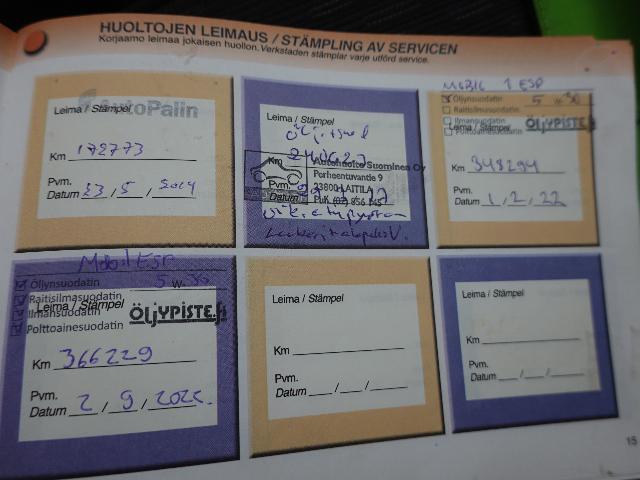 HUOLTOJEN LEIMAUS / STÄMPLING AV SERVICEN
Korjaamo leimaa jokaisen huollon. Verkstaden stämplar varje utförd service.
AutoPalin
Leima / Stämpel
Km 172773
Pvm.
Datum 23 / 5 / 2014
Leima / Stämpel
Km 240627
Autohuolto Suominen Oy
Perheentuvantie 9
23800 LAITILA
Puh. (02) 856 145
Pvm.
Datum
Mobil 1 ESP
Öljynsuodatin 5 W 30
Raitisilmasuodatin
Ilmansuodatin
Polttoainesuodatin
Leima / Stämpel
ÖLJYPISTE.fi
Km 348294
Pvm.
Datum 1 / 2 / 22
Mobil ESP
Öljynsuodatin 5 W 30
Raitisilmasuodatin
Ilmansuodatin
Polttoainesuodatin
Leima / Stämpel
ÖLJYPISTE.fi
Km 366229
Pvm.
Datum 2 / 9 / 2022.
Leima / Stämpel
Km
Pvm.
Datum / /
Leima / Stämpel
Km
Pvm.
Datum / /
15